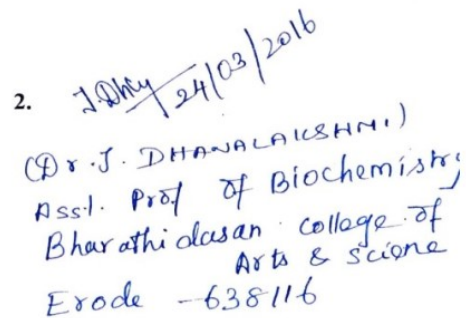 2. J.Dhy 24/03/2016
(Dr.J. DHANALAKSHMI)
Asst. Prof of Biochemistry
Bharathidasan college of
Arts & Scione
Erode - 638116